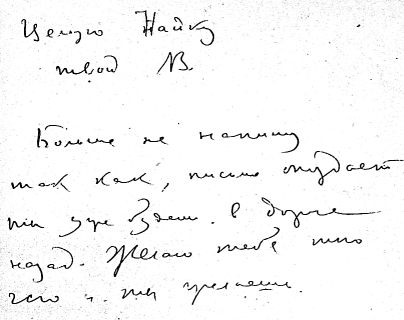 Целую Найку
твой В.
Больше не напишу
так как, письмо опоздает
ты уже будешь в дороге
назад. Желаю тебе
чего и ты